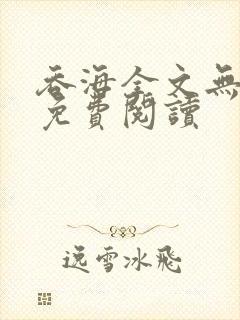 吞海全文無
免費閱讀
逸雪冰飛